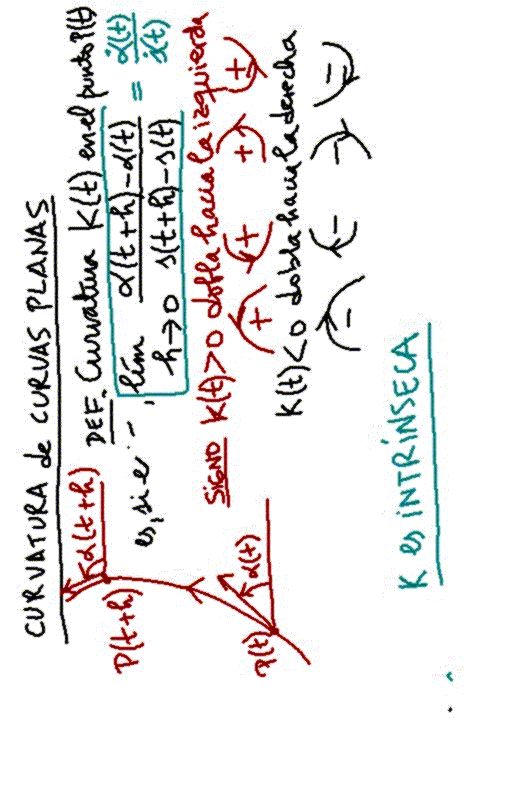 CURVATURA de CURVAS PLANAS
DEF. Curvatura K(t) en el punto P(t)
es, si e -, lím α(t+h)-α(t) / s(t+h)-s(t) = α̇(t) / ṡ(t)
h→0
SIGNO K(t)>0 dobla hacia la izquierda
+ + + +
K(t)<0 dobla hacia la derecha
- - - -
K es INTRÍNSECA
α(t+h)
P(t+h)
α(t)
P(t)